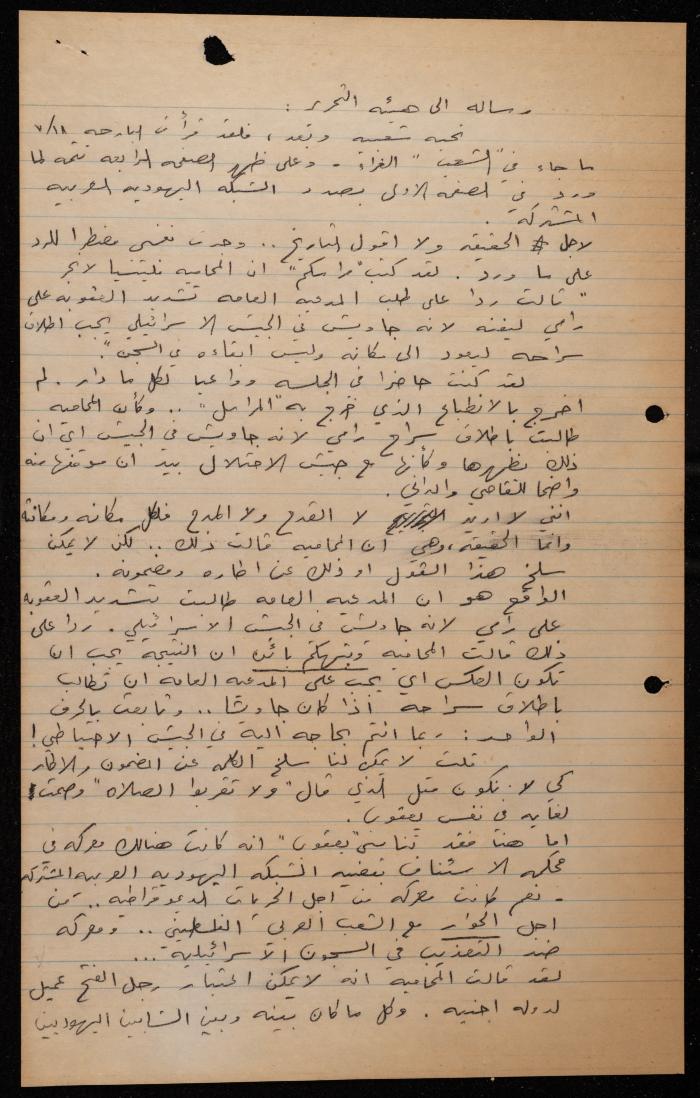 رساله الى هيئه التحرير :
تحيه شعبيه وبعد ، فلقد قرأت البارحه ٧/١٨
ما جاء في "الشعب" الغراء - وعلى ظهر الصفحه الرابعه تتمه لما
ورد في الصفحه الاولى بصدد الشبكه اليهوديه العربيه
المشتركه .
لاجل الحقيقه ولا اقول التاريخ .. وجدت نفسي مضطرا للرد
على ما ورد . لقد كتب "مراسلكم" ان المحاميه فليتسيا لانجر
" قالت ردا على طلب المدعيه العامه تشديد العقوبه على
رامي ليفنه لانه جاويش في الجيش الاسرائيلي يجب اطلاق
سراحه ليعود الى مكانه وليس ابقاءه في السجن " .
لقد كنت حاضرا في الجلسه وواعيا لكل ما دار . لم
اخرج بالانطباع الذي خرج به "المراسل" .. وكأن المحاميه
طالبت باطلاق سراح رامي لانه جاويش في الجيش اي ان
ذلك يظهرها وكأنها مع جيش الاحتلال بيد ان موقفها منه
واضحا للقاصي والداني .
انني لا اريد لا القدح ولا المدح فلكل مكانه ومكانة
وانما الحقيقه ، وهي ان المحاميه قالت ذلك .. لكن لا يمكن
سلخ هذا القول او ذلك عن اطاره ومضمونه .
الواقع هو ان المدعيه العامه طالبت بتشديد العقوبه
على رامي لانه جاويش في الجيش الاسرائيلي . ردا على
ذلك قالت المحاميه وبتهكم بائن ان النتيجة يجب ان
تكون العكس اي يجب على المدعيه العامه ان تطالب
باطلاق سراحه اذا كان جاويشا .. وتابعت بالحرف
الواحد : ربما انتم بحاجه اليه في الجيش الاحتياطي !
قلت لا يمكن لنا سلخ الكلمه عن المضمون والاطار
كي لا نكون مثل الذي قال "ولا تقربوا الصلاه" وصمت
لغايه في نفس يعقوب .
اما هنا فقد تناسى "يعقوب" انه كانت هنالك معركه في
محكمه الاستئناف بقضيه الشبكه اليهوديه العربيه المشتركه
- نعم كانت معركه من اجل الحريات الديموقراطيه .. من
اجل الحوار مع الشعب العربي الفلسطيني .. ومعركه
ضد التعذيب في السجون الاسرائيلية ...
لقد قالت المحاميه انه لا يمكن اعتبار رجل الفتح عميل
لدوله اجنبيه . وكل ما كان بينه وبين الشابين اليهوديين